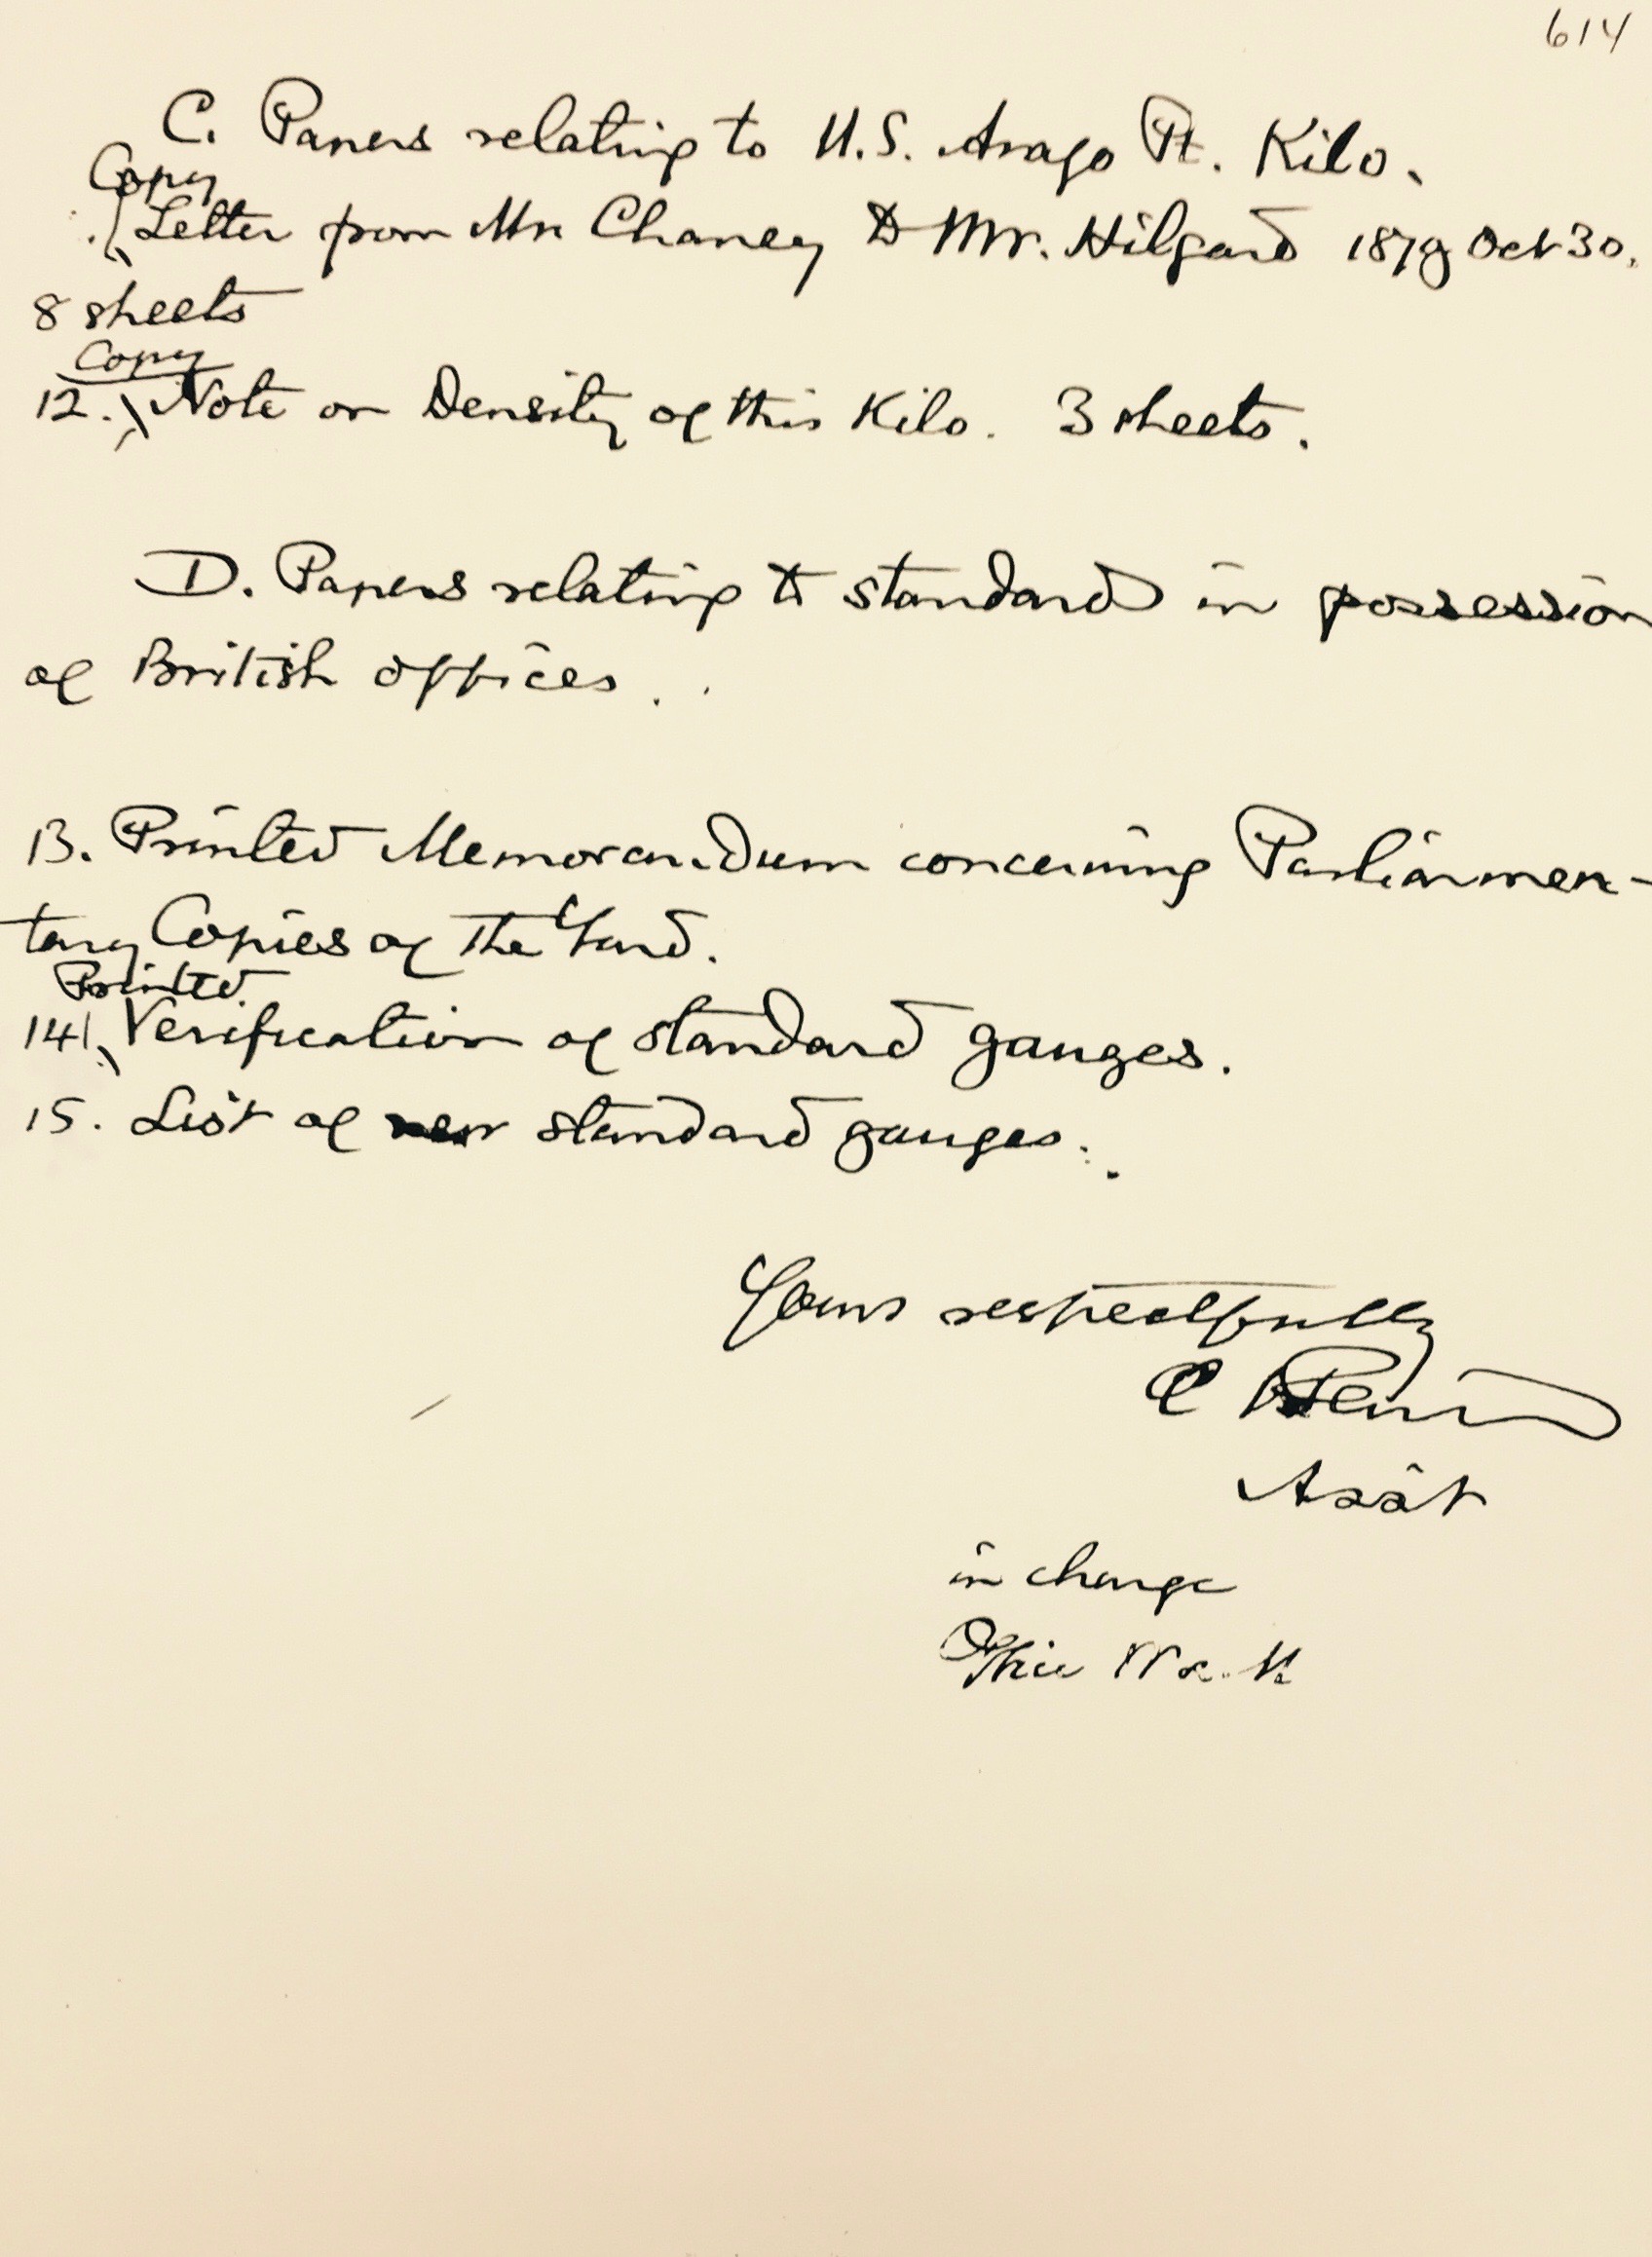 614
C. Papers relating to U.S. Arago Pt. Kilo.
Copy
Letter from Mr Chaney to Mr. Hilgard 1879 Oct 30.
8 sheets
Copy
12. Note on Density of this Kilo. 3 sheets.
D. Papers relating to standard in possession
of British offices.
13. Printed Memorandum concerning Parliamen-
tary Copies of the Yard.
Printed
14. Verification of standard gauges.
15. List of new standard gauges.
Yours respectfully
C
Asst
in charge
Office W & M